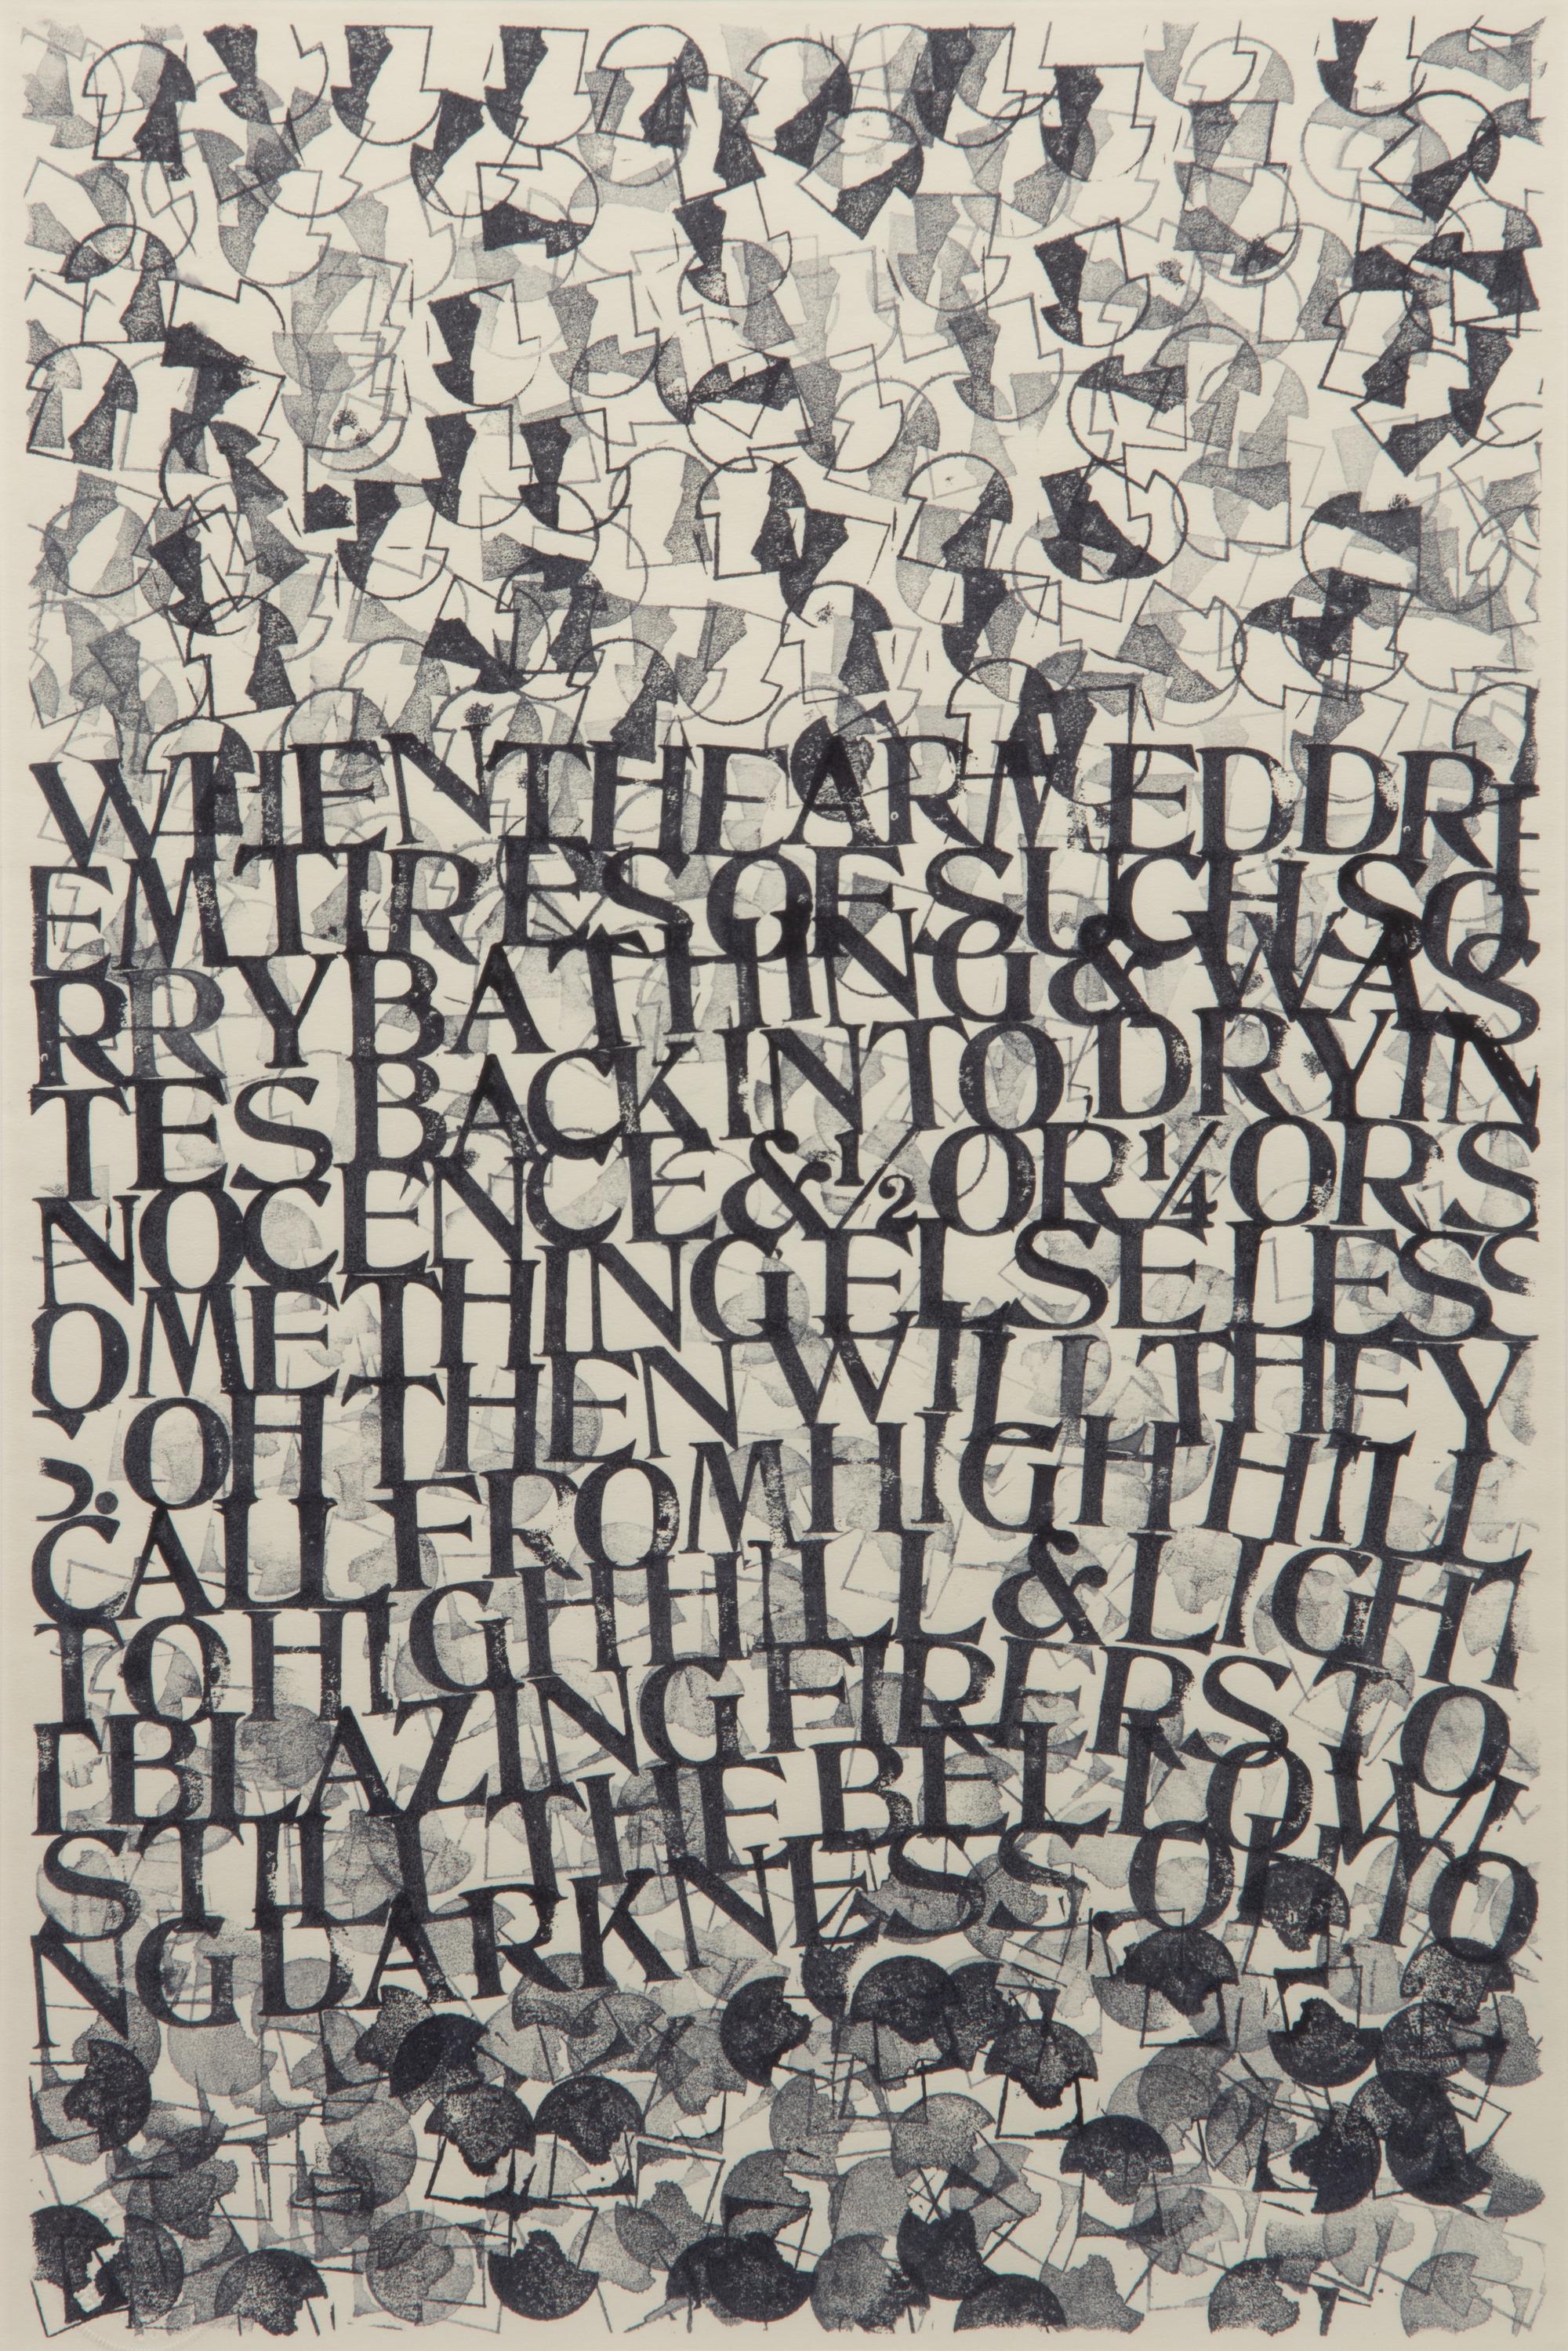 WHEN THE ARMED DRI
EM TIRES OF SUCH SO
RRY BATHING & WAS
TES BACK INTO DRY IN
NOCENCE & ½ OR ¼ OR S
OMETHING ELSE LESS
. OH THEN WILL THEY
CALL FROM HIGH HILL
TO HIGH HILL & LIGHT
BLAZING FIRERS TO
STILL THE BELLOWI
NG DARKNESS OH TO